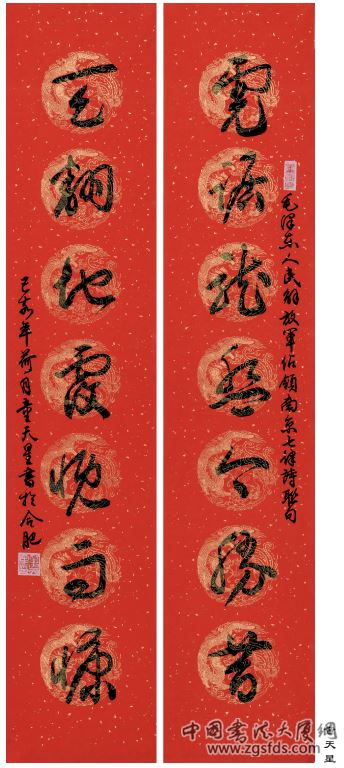 毛泽东人民解放军佔领南京七律诗联句
虎踞龙盘今胜昔
天翻地覆慨而慷
己亥年荷月童天星书於合肥
中國書法大厦網
www.zgsfds.com
童天星